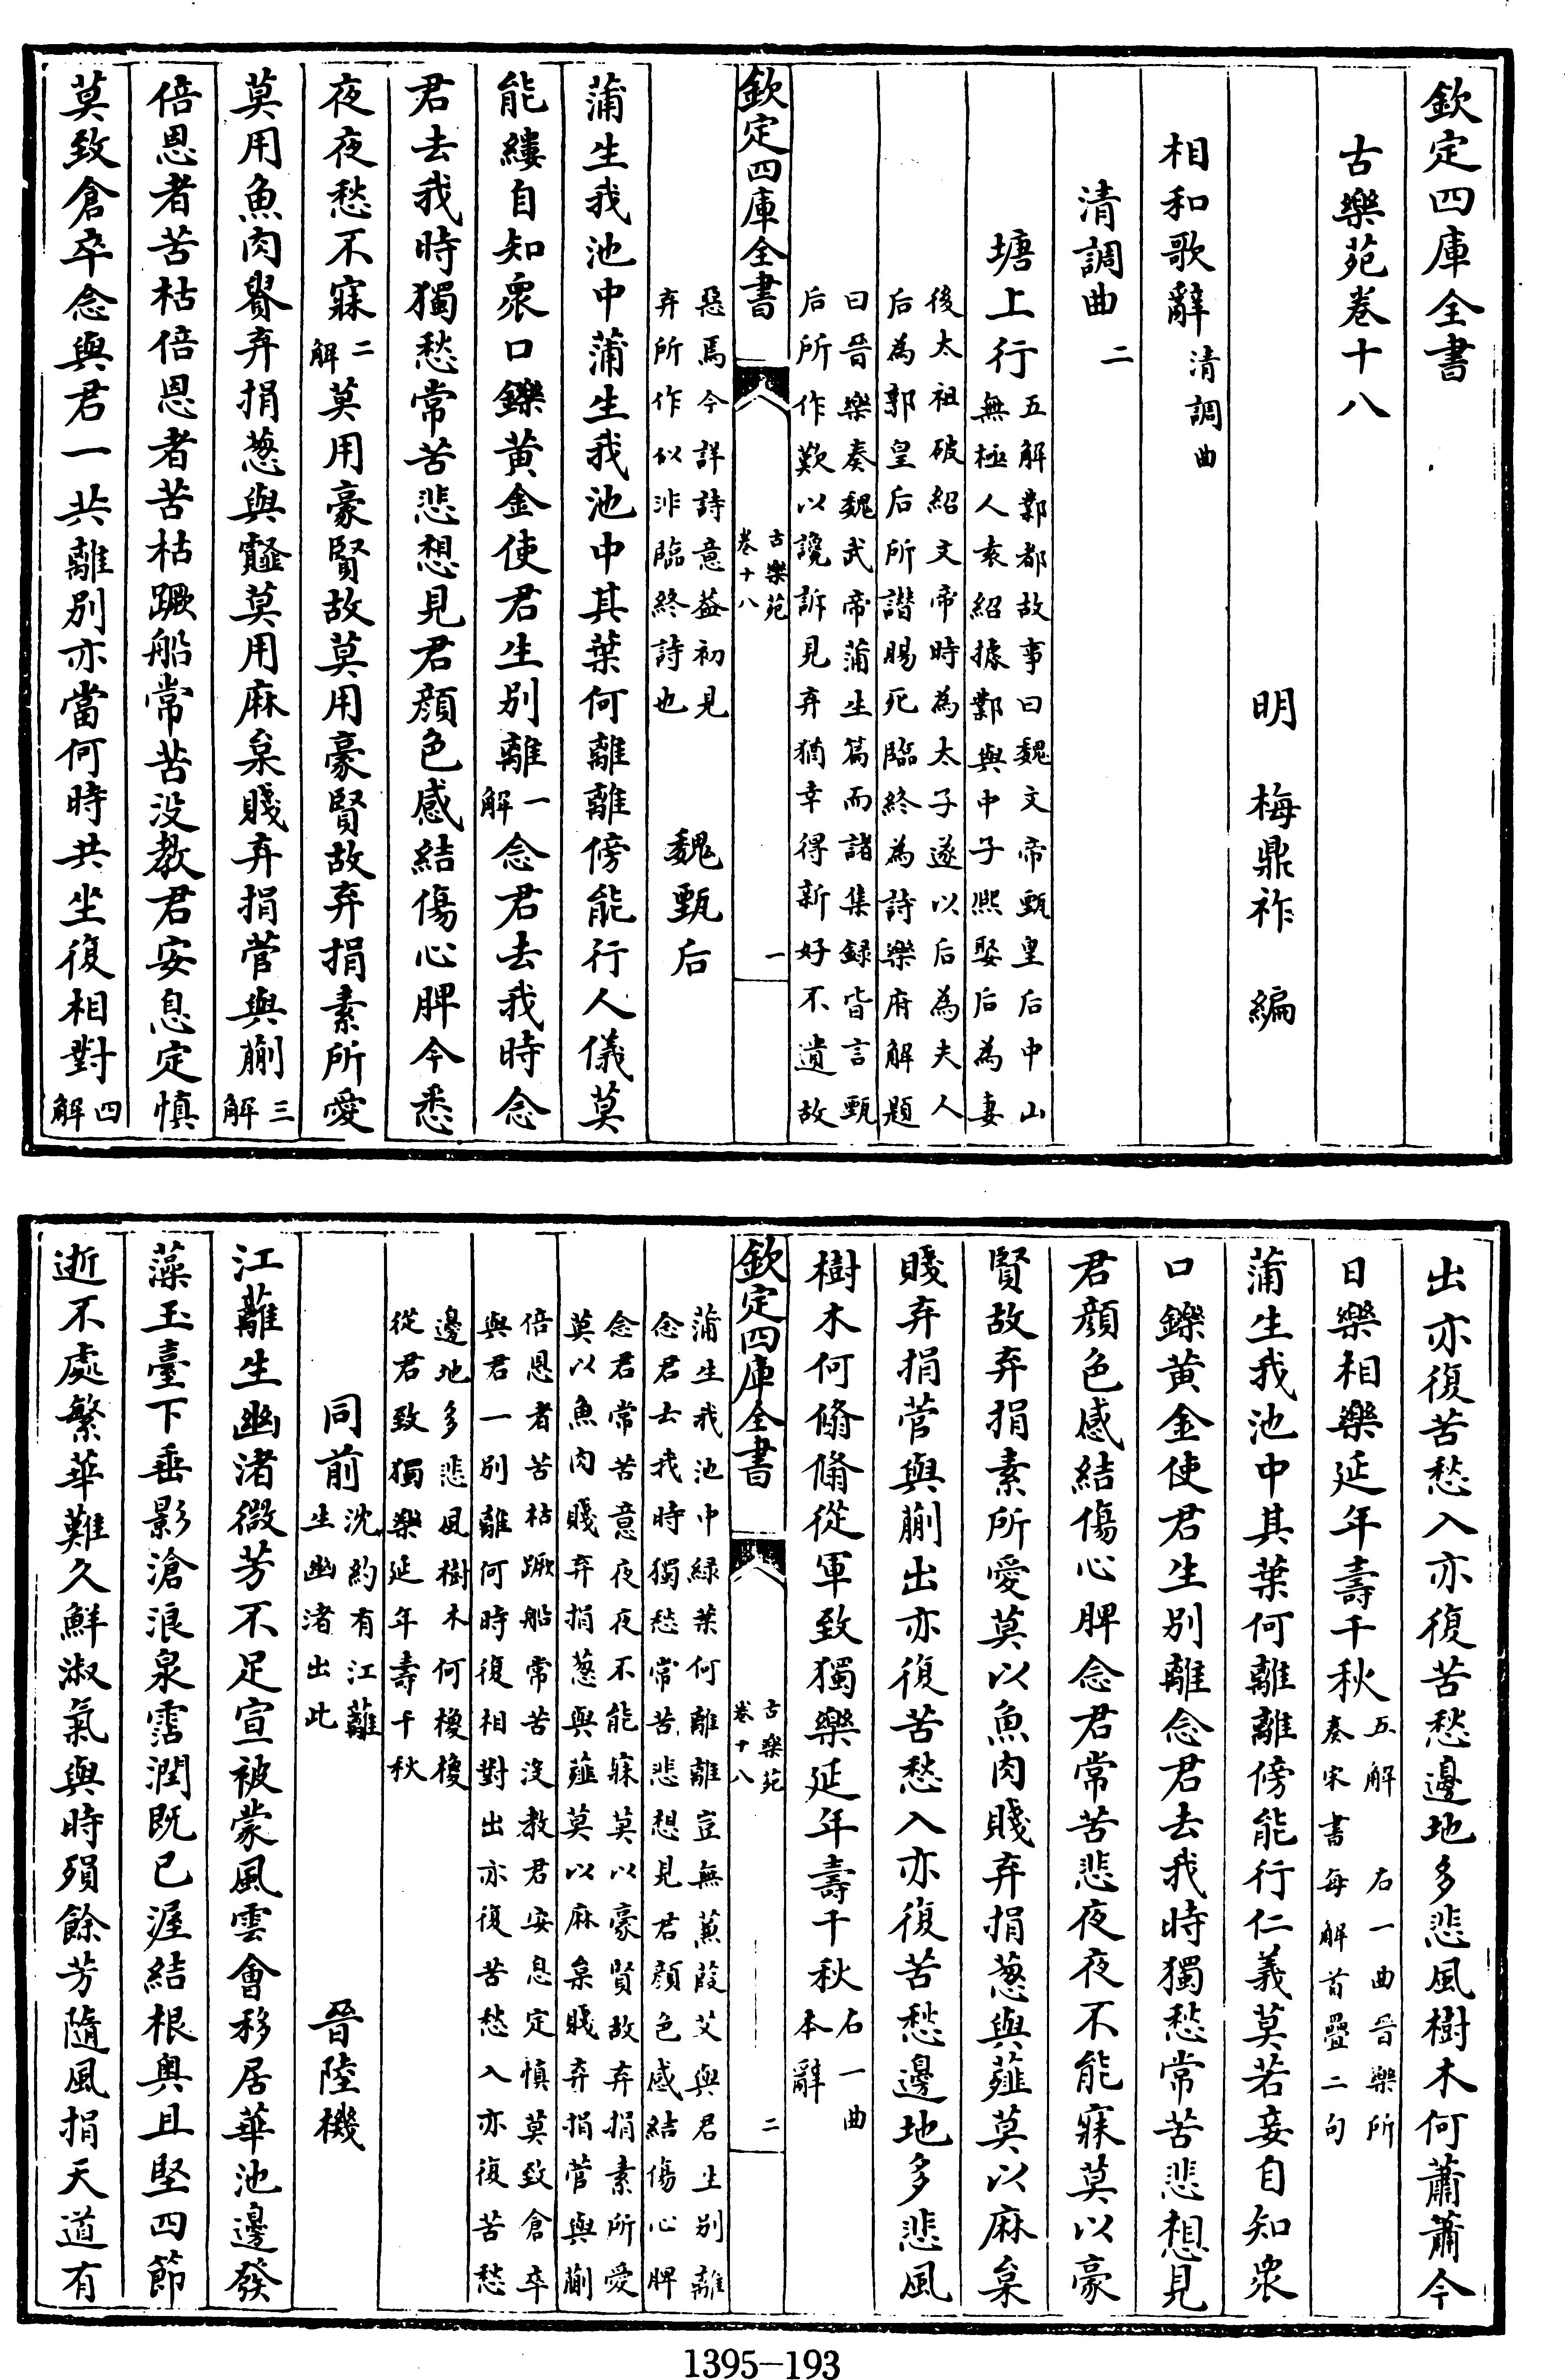 欽定四庫全書
古樂苑卷十八
明　梅鼎祚　編
相和歌辭清調曲
清調曲二
塘上行五解鄴都故事曰魏文帝甄皇后中山
無極人袁紹據鄴與中子熙娶后為妻
後太祖破紹文帝時為太子遂以后為夫人
后為郭皇后所譖賜死臨終為詩樂府解題
曰晉樂奏魏武帝蒲生篇而諸集録皆言甄
后所作歎以讒訴見弃猶幸得新好不遺故
欽定四庫全書
古樂苑
卷十八
一
惡焉今詳詩意葢初見
弃所作似非臨終詩也
魏甄后
蒲生我池中蒲生我池中其葉何離離傍能行人儀莫
能縷自知衆口鑠黄金使君生别離一解念君去我時念
君去我時獨愁常苦悲想見君顔色感結傷心脾今悉
夜夜愁不寐二解莫用豪賢故莫用豪賢故弃捐素所愛
莫用魚肉貴弃捐葱與薤莫用麻枲賤弃捐菅與蒯三解
倍恩者苦枯倍恩者苦枯蹶船常苦没教君安息定慎
莫致倉卒念與君一共離别亦當何時共坐復相對四解
出亦復苦愁入亦復苦愁邊地多悲風樹木何蕭蕭今
日樂相樂延年壽千秋五解　右一曲晉樂所
奏宋書每解首疊二句
蒲生我池中其葉何離離傍能行仁義莫若妾自知衆
口鑠黄金使君生别離念君去我時獨愁常苦悲想見
君顔色感結傷心脾念君常苦悲夜夜不能寐莫以豪
賢故弃捐素所愛莫以魚肉賤弃捐葱與薤莫以麻枲
賤弃捐菅與蒯出亦復苦愁入亦復苦愁邊地多悲風
樹木何翛翛從軍致獨樂延年壽千秋右一曲
本辭
欽定四庫全書
古樂苑
卷十八
二
蒲生我池中緑葉何離離豈無蒹葭艾與君生别離
念君去我時獨愁常苦悲想見君顔色感結傷心脾
念君常苦意夜夜不能寐莫以豪賢故弃捐素所愛
莫以魚肉賤弃捐葱與薤莫以麻枲賤弃捐菅與蒯
倍恩者苦枯蹶船常苦没教君安息定慎莫致倉卒
與君一别離何時復相對出亦復苦愁入亦復苦愁
邊地多悲風樹木何橃橃
從君致獨樂延年壽千秋
同前沈約有江蘺
生幽渚出此
晉陸機
江蘺生幽渚微芳不足宣被蒙風雲會移居華池邊發
藻玉臺下垂影滄浪泉霑潤既已渥結根奥且堅四節
逝不處繁華難久鮮淑氣與時殞餘芳隨風捐天道有
1395-193